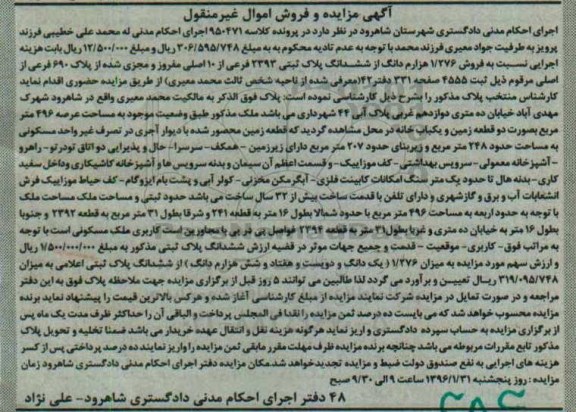 آگهی مزایده و فروش اموال غیرمنقول
اجرای احکام مدنی دادگستری شهرستان شاهرود در نظر دارد در پرونده کلاسه ۹۵۰۴۷۱ اجرای احکام مدنی له محمد علی خطیبی فرزند
پرویز به طرفیت جواد معیری فرزند محمد با توجه به عدم تادیه محکوم به به مبلغ ۳۰۶/۵۹۵/۷۴۸ ریال و مبلغ ۱۲/۵۰۰/۰۰۰ ریال بابت هزینه
اجرایی نسبت به فروش ۱/۲۷۶ هزارم دانگ از ششدانگ پلاک ثبتی ۲۳۹۳ فرعی از ۱۰ اصلی مفروز و مجزی شده از پلاک ۶۹۰ فرعی از
اصلی مرقوم ذیل ثبت ۴۵۵۵ صفحه ۳۳۱ دفتر ۴۲ (معرفی شده از ناحیه شخص ثالث محمد معیری) از طریق مزایده حضوری اقدام نماید
کارشناس منتخب پلاک مذکور را بشرح ذیل کارشناسی نموده است: پلاک فوق الذکر به مالکیت محمد معیری واقع در شاهرود شهرک
مهدی آباد خیابان ده متری دوازدهم غربی پلاک آبی ۴۴ شهرداری می باشد ملک مذکور طبق وضعیت موجود به مساحت عرصه ۴۹۶ متر
مربع بصورت دو قطعه زمین و یکباب خانه در محل مشاهده گردید که قطعه زمین محصور شده با دیوار آجری در تصرف غیر واحد مسکونی
به مساحت حدود ۲۴۸ متر مربع و زیربنای حدود ۲۰۷ متر مربع دارای زیرزمین - همکف - سرسرا - حال و پذیرایی دو اتاق تودرتو - راهرو
- آشپزخانه معمولی - سرویس بهداشتی - کف موزاییک - و قسمت اعظم آن سیمان و بدنه سرویس ها و آشپزخانه کاشیکاری و داخل سفید
کاری - بدنه هال تا حدود یک متر سنگ امکانات کابینت فلزی - آبگرمکن مخزنی - کولر آبی و پشت بام ایزوگام - کف حیاط موزاییک فرش
انشعابات آب و برق و گازشهری و دارای تلفن با قدمت ساخت بیش از ۳۲ سال ساخت می باشد حدود ثبتی و مساحت ملک مساحت ملک
با توجه به حدود اربعه به مساحت ۴۹۶ متر مربع با حدود شمالا بطول ۱۶ متر به قطعه ۲۴۱ و شرقا بطول ۳۱ متر مربع به قطعه ۲۳۹۲ و جنوبا
بطول ۱۶ متر به خیابان ده متری و غربا بطول ۳۱ متر به قطعه ۲۳۹۴ فواصل پی در پی با مجاورین است کاربری ملک مسکونی است با توجه
به مراتب فوق - کاربری - موقعیت - قدمت و جمیع جهات موثر در قضیه ارزش ششدانگ پلاک ثبتی مذکور به مبلغ ۱/۵۰۰/۰۰۰/۰۰۰ ریال
و ارزش سهم مورد مزایده به میزان ۱/۲۷۶ ( یک دانگ و دویست و هفتاد و شش هزارم دانگ ) از ششدانگ پلاک ثبتی اعلامی به میزان
۳۱۹/۰۹۵/۷۴۸ ریال تعیین و برآورد می گردد لذا طالبین می توانند ۵ روز قبل از برگزاری مزایده جهت ملاحظه پلاک فوق به این دفتر
مراجعه و در صورت تمایل در مزایده شرکت نمایند مزایده از مبلغ کارشناسی آغاز شده و هرکس بالاترین قیمت را پیشنهاد نماید برنده
مزایده محسوب خواهد شد که می بایست ده درصد ثمن مزایده را نقدا فی المجلس پرداخت و الباقی آن را حداکثر ظرف مدت یک ماه پس
از برگزاری مزایده به حساب سپرده دادگستری واریز نماید هرگونه هزینه نقل و انتقال عهده خریدار می باشد ضمنا تخلیه و تحویل پلاک
مذکور تابع مقررات مربوطه می باشد چنانچه برنده مزایده ظرف مهلت مقرر مابقی ثمن مزایده را واریز ننماید ده درصد پرداختی پس از کسر
هزینه های اجرایی به نفع صندوق دولت ضبط و مزایده تجدید خواهد شد. مکان مزایده دفتر اجرای احکام مدنی دادگستری شاهرود زمان
مزایده : روز پنجشنبه ۱۳۹۶/۱/۳۱ ساعت ۹ الی ۹/۳۰ صبح
۴۸ دفتر اجرای احکام مدنی دادگستری شاهرود - علی نژاد